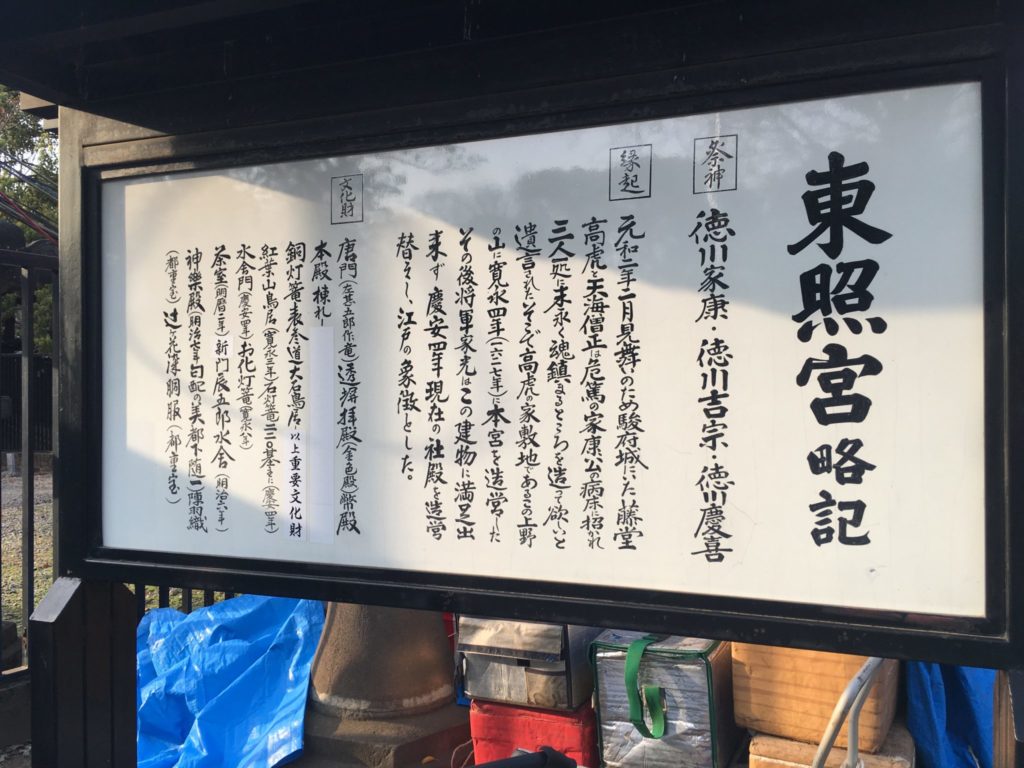 東照宮略記
祭神
徳川家康・徳川吉宗・徳川慶喜
縁起
元和二年二月見舞のため駿府城にいた藤堂
高虎と天海僧正は危篤の家康公の病床に招かれ
三人一処に末永く魂鎮まるところを造って欲しいと
遺言された。そこで高虎の家敷地であるこの上野
の山に寛永四年(一六二七年)に本宮を造営した
その後将軍家光はこの建物に満足出
来ず慶安四年現在の社殿を造営
替えし、江戸の象徴とした。
文化財
唐門(左甚五郎作竜)透塀拝殿(金色殿)幣殿
本殿棟札
銅灯篭表参道大石鳥居以上重要文化財
紅葉山鳥居(寛永三年)石灯篭二二〇基(慶安四年)
水舎門(慶安四年)お化灯篭(寛永八年)
茶室(明暦二年)新門辰五郎水舎(明治六年)
神樂殿(明治七年勾配の美都下随一)陣羽織
(都重宝)辻が花染胴服(都重宝)